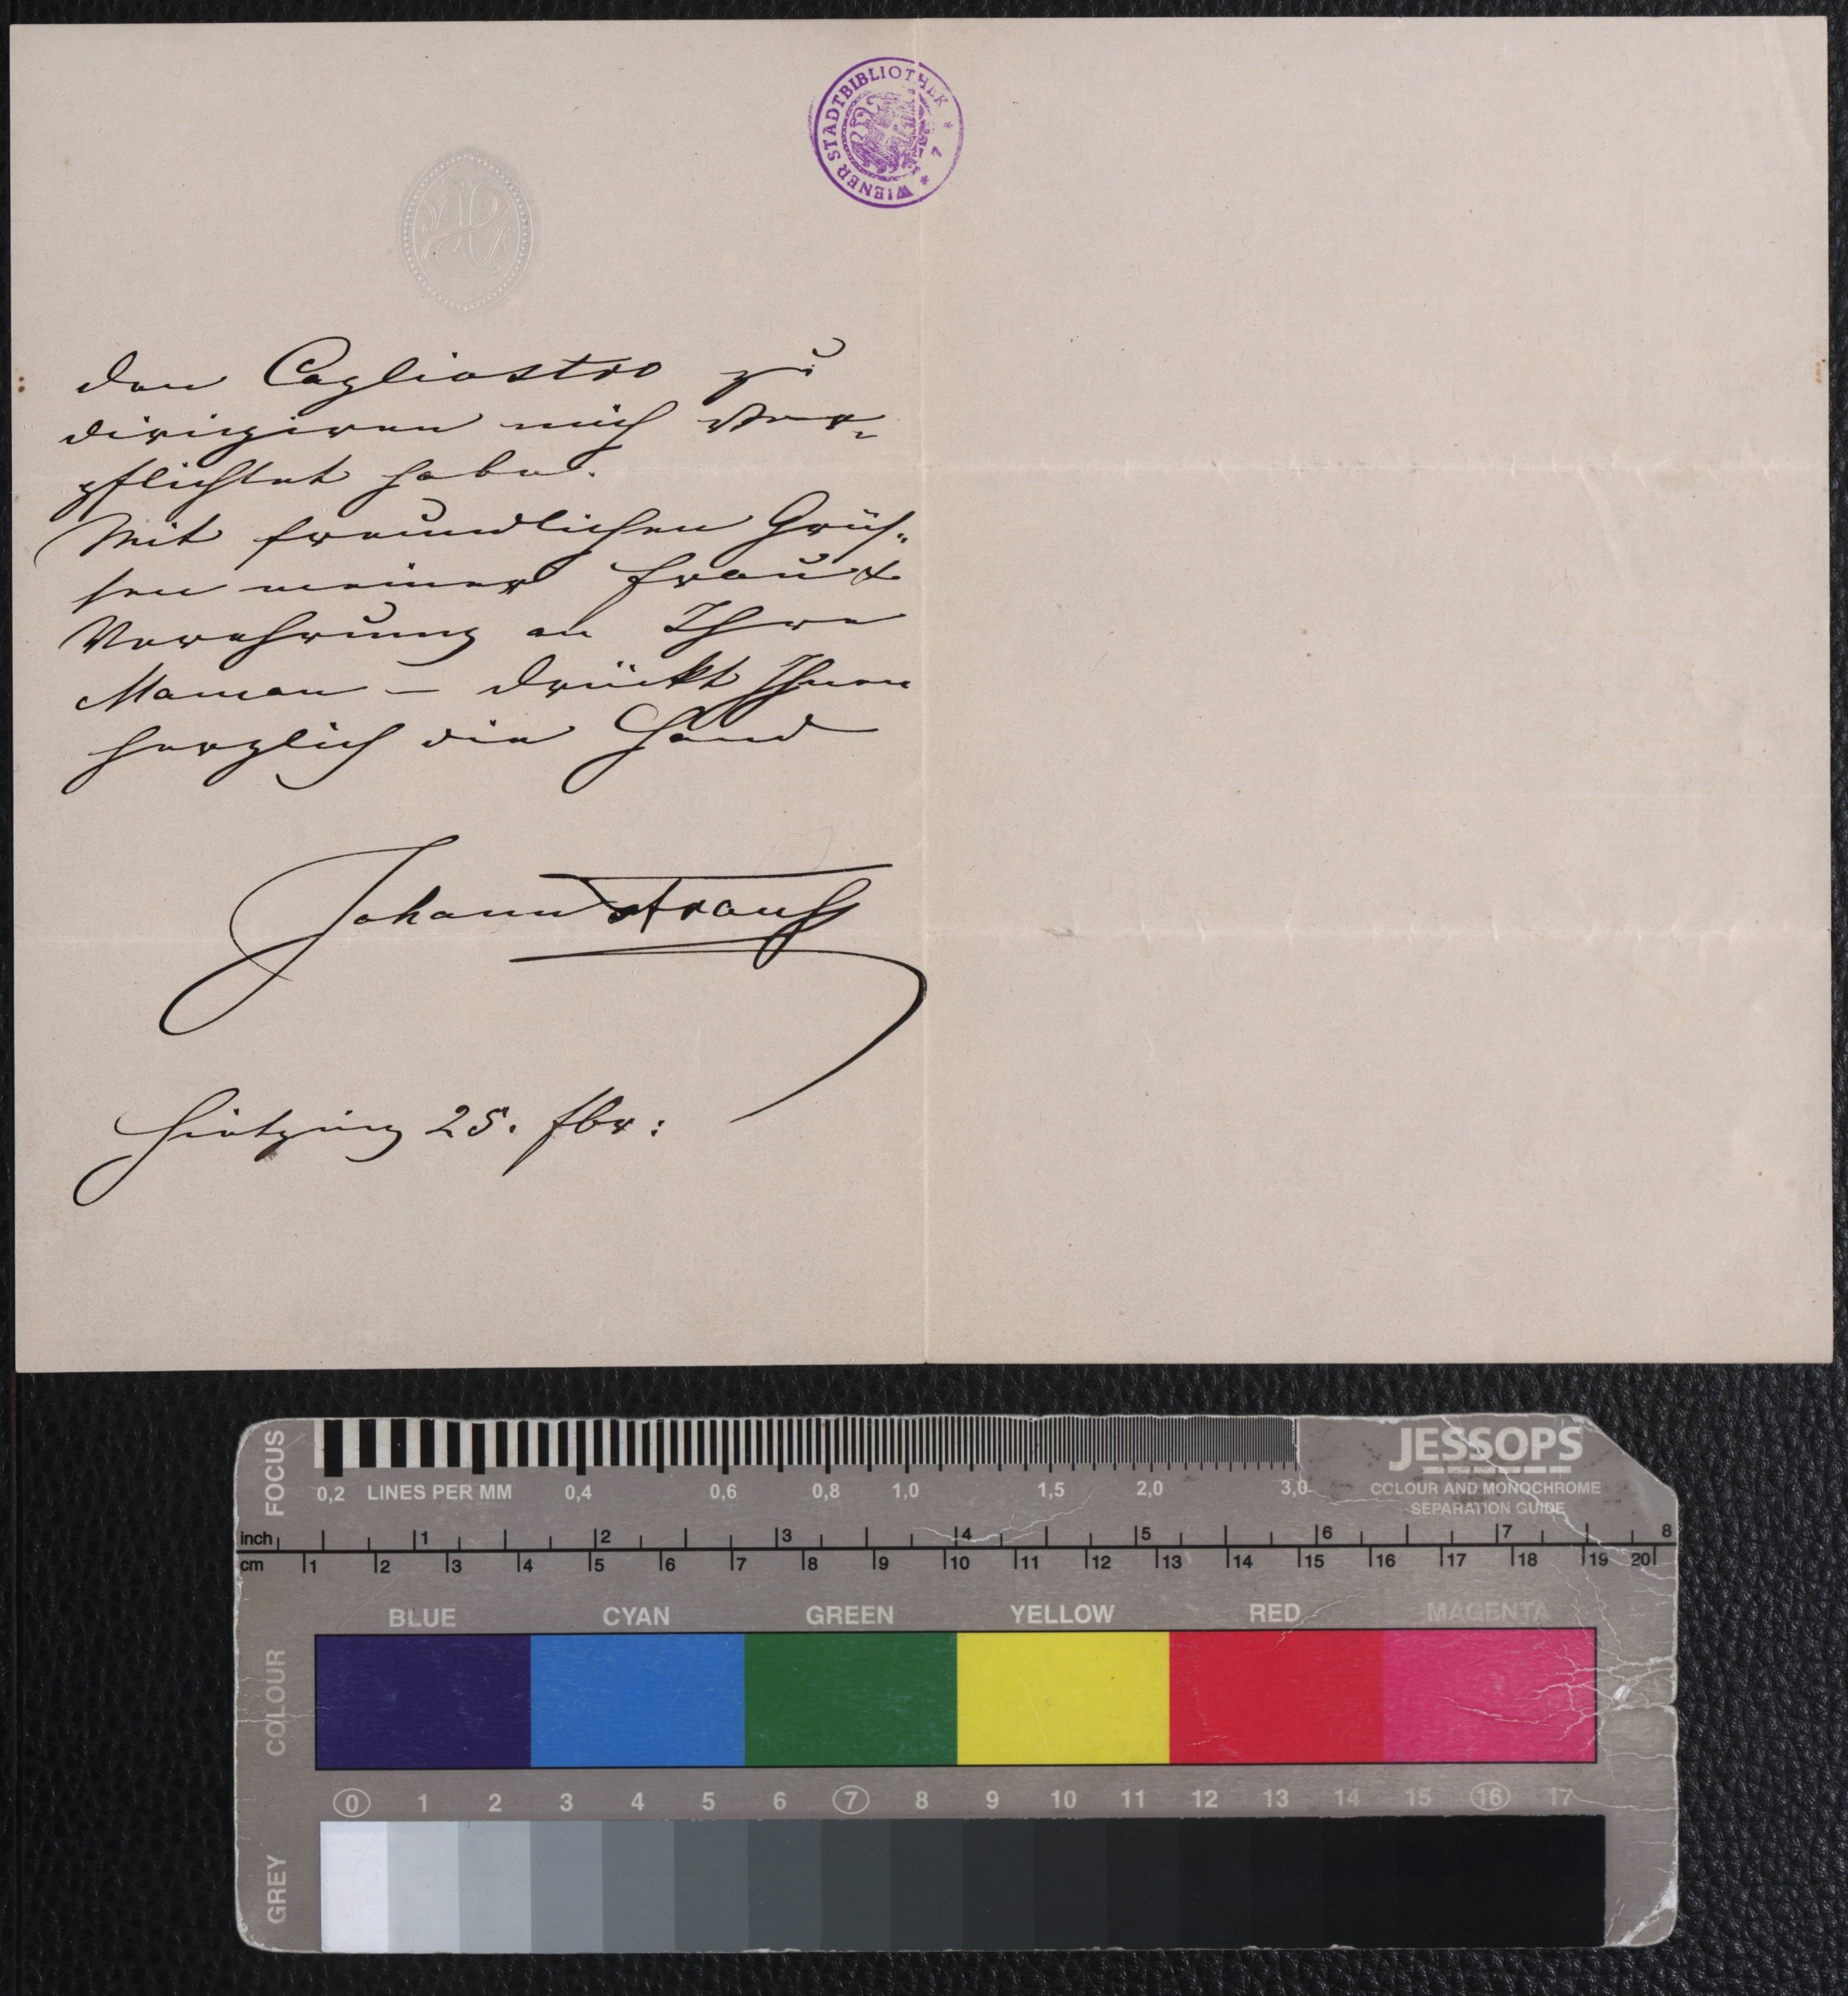 WIENER STADTBIBLIOTHEK * 7 *
den Cagliostro zu
dirigiren mich ver-
pflichtet habe.
Mit freundlichen Grüs-
sen meiner Frau &
Verehrung an Ihre
Maman – drückt Ihnen
herzlich die Hand
Johann Strauss
Hietzing 25. fbr:
FOCUS
JESSOPS
0,2 LINES PER MM 0,4 0,6 0,8 1,0 1,5 2,0 3,0
COLOUR AND MONOCHROME
SEPARATION GUIDE
inch 1 2 3 4 5 6 7 8
cm 1 2 3 4 5 6 7 8 9 10 11 12 13 14 15 16 17 18 19 20
BLUE CYAN GREEN YELLOW RED MAGENTA
COLOUR
0 1 2 3 4 5 6 7 8 9 10 11 12 13 14 15 16 17
GREY